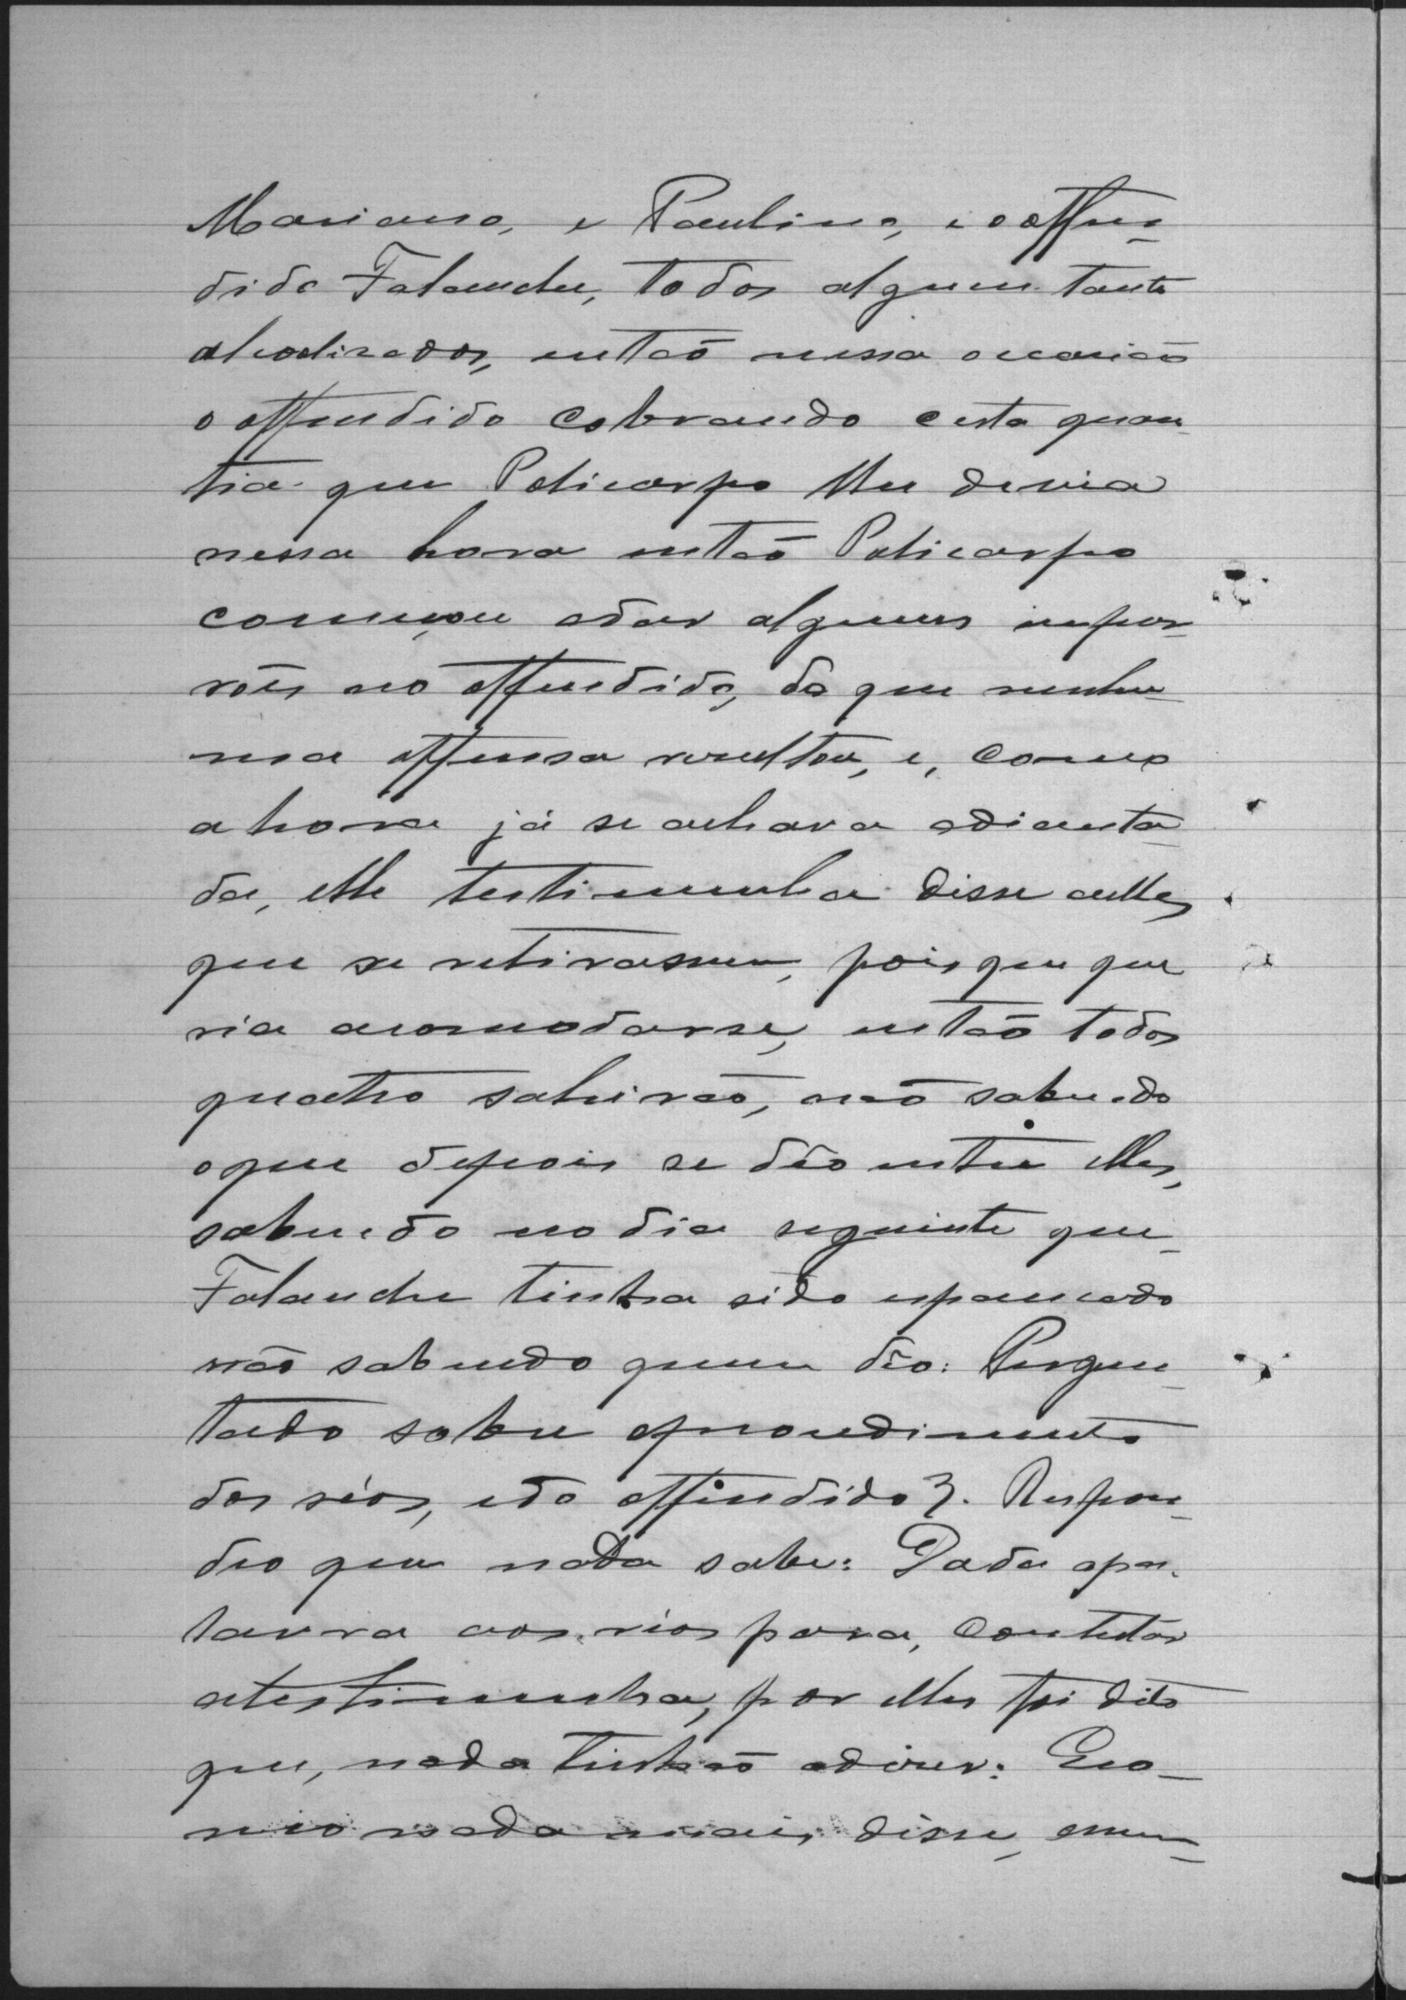 Mariano, e Paulino, e o offen-
dido Falanche, todos algum tanto
alcoolizados, então nessa occasião
o offendido cobrando certa quan-
tia que Policarpo lhe devia
nessa hora então Policarpo
começou adar alguns impur-
rões no offendido, do que nenhu-
ma offensa resultou, e, como
a hora já se achava adianta-
da, elle testimunha disse aelles
que se retirassem, pois que que
ria acomodarse, então todos
quatro sahirão, não sabendo
oque depois se déo entre elles,
sabendo no dia seguinte que
Falanche tinha sido espancado
não sabendo quem déo: Pergun-
tado sobre oprocedimento
dos réos, edo offendido?. Respon-
deo que nada sabe: Dada apa-
lavra aos réos para, contestar
atestimunha, por elles foi dito
que, nada tinhão adizer: E co-
mo nada mais disse, enem-